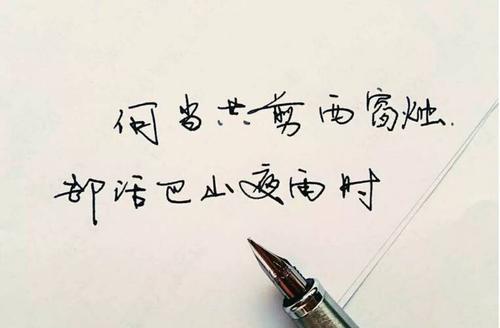 何当共剪西窗烛.
却话巴山夜雨时